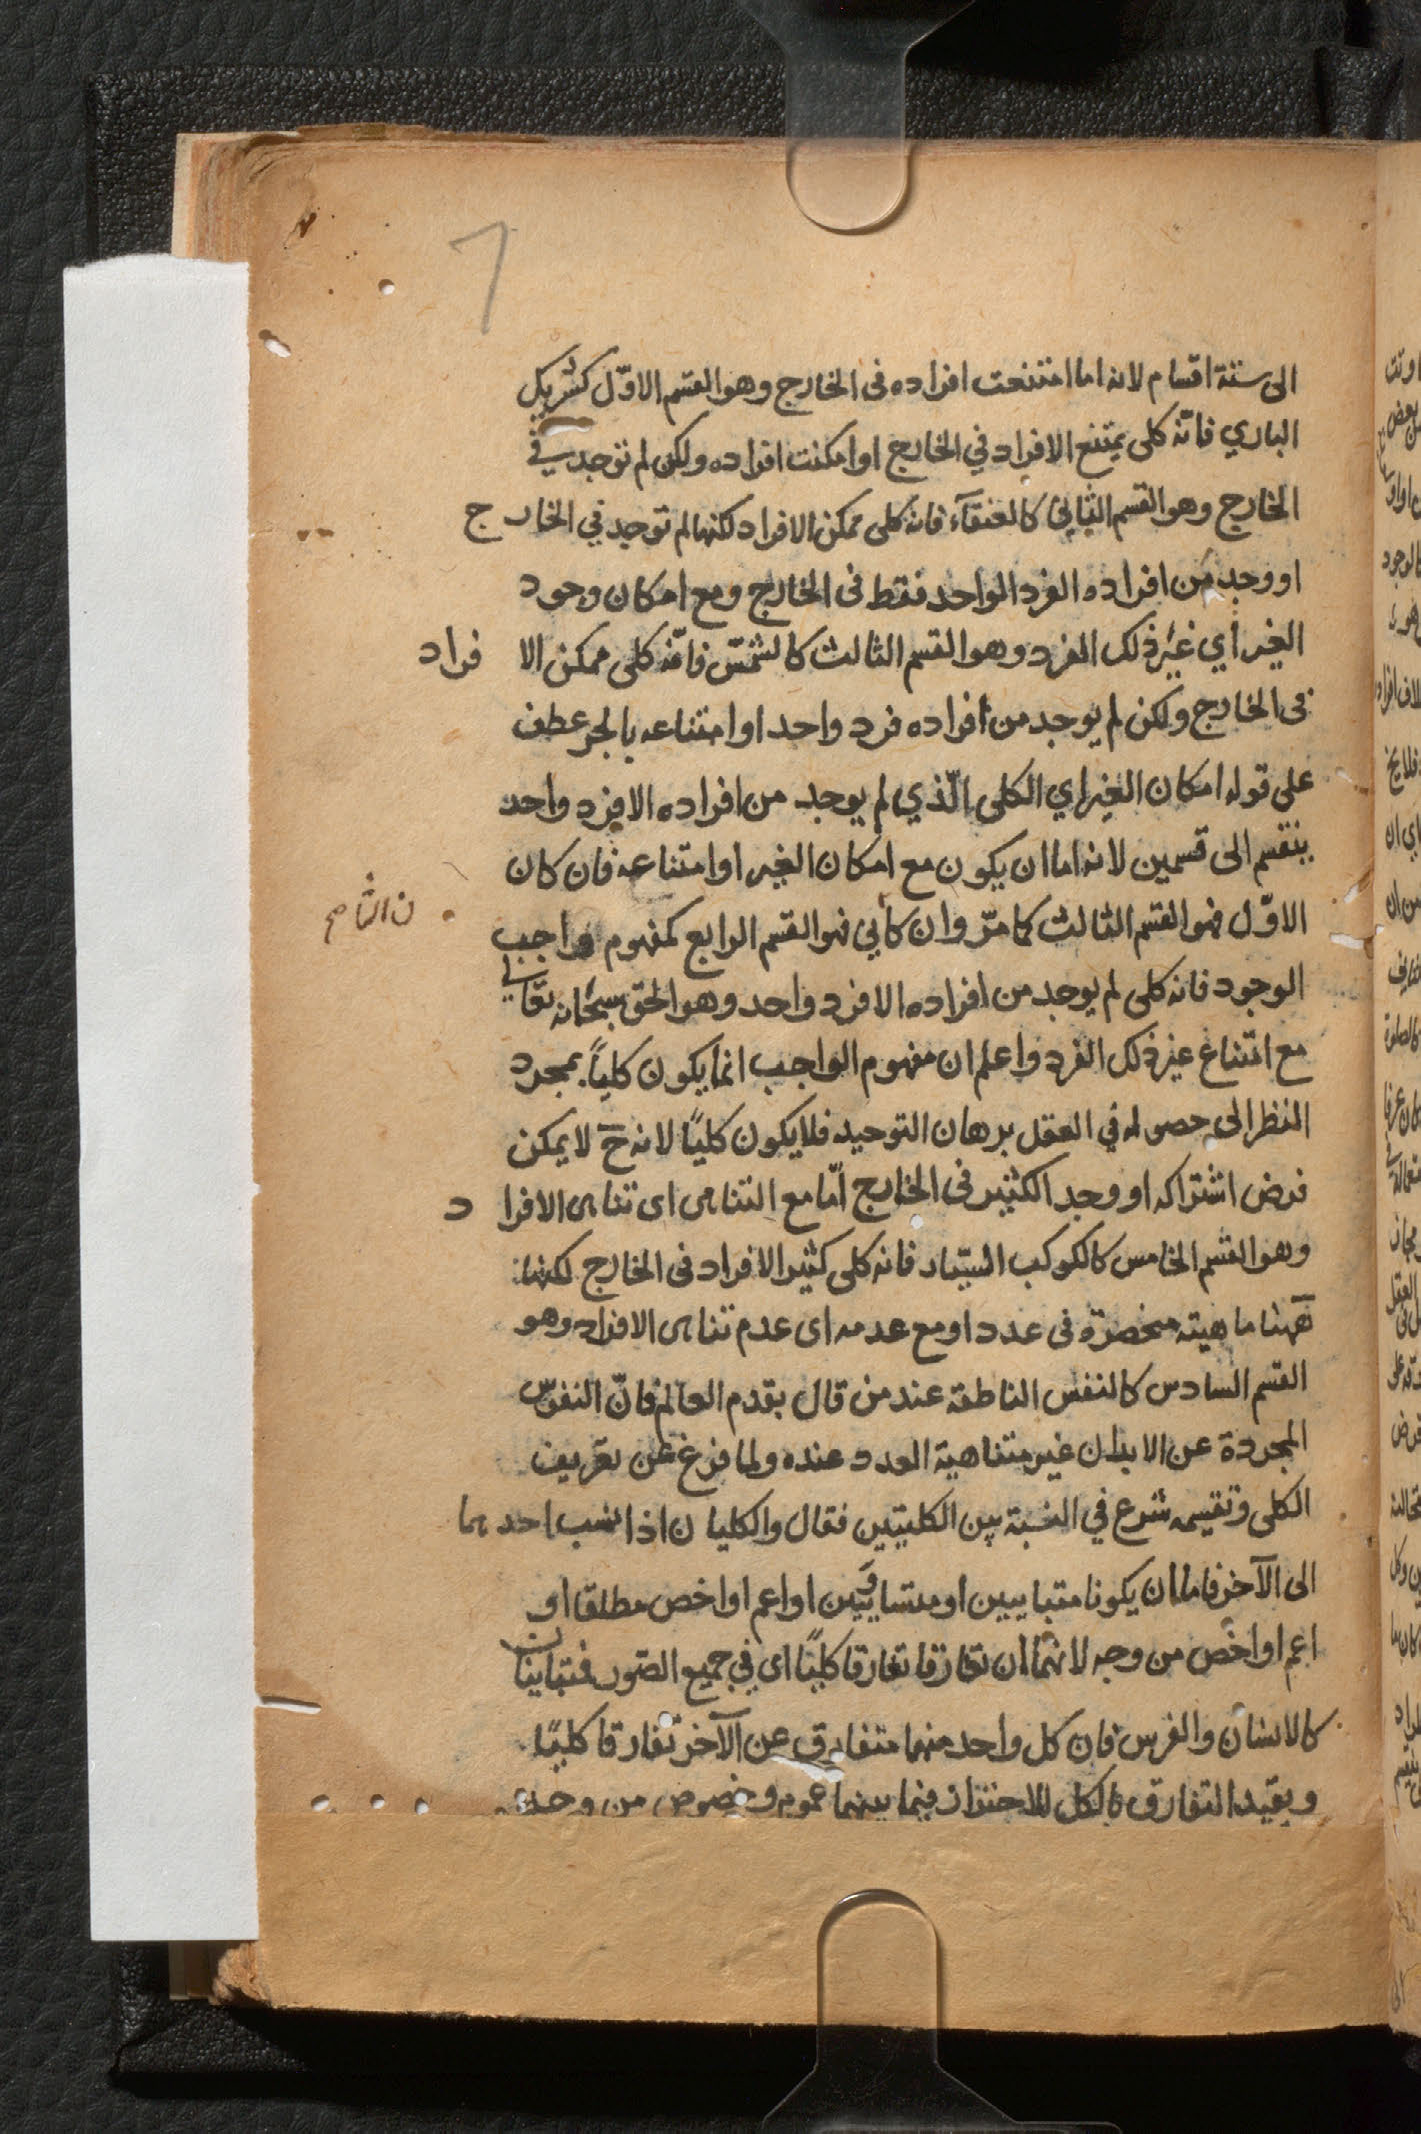 الى ستة اقسام لانه اما امتنعت افراده فى الخارج وهو القسم الاوّل كشريك
الباري فانّه كلى يمتنع الافراد في الخارج او امكنت افراده ولكن لم توجد في
الخارج وهو القسم الثاني كالعنقآء فانه كلى ممكن الافراد لكنها لم توجد في الخارج
او وجد من افراده الفرد الواحد فقط فى الخارج ومع امكان وجود
الغير أي غير ذلك الفرد وهو القسم الثالث كالشمس فانّه كلى ممكن الافراد
فى الخارج ولكن لم يوجد من افراده فرد واحد او امتناعه بالجر عطف
على قوله امكان الغير اي الكلى الّذي لم يوجد من افراده الا فرد واحد
ينقسم الى قسمين لانه اما ان يكون مع امكان الغير او امتناعه فان كان
الاوّل فهو القسم الثالث كما مرّ وان كان الثاني فهو القسم الرابع كمفهوم واجب
الوجود فانه كلى لم يوجد من افراده الا فرد واحد وهو الحق سبحانه تعالى
مع امتناع غير ذلك الفرد واعلم ان مفهوم الواجب انما يكون كلياً بمجرد
النظر الى حصوله في العقل برهان التوحيد فلا يكون كليًا لانه ح لا يمكن
فرض اشتراكه او وجد الكثير فى الخارج امّا مع التناهى اى تناهى الافراد
وهو القسم الخامس كالكوكب السيّار فانه كلى كثير الافراد فى الخارج لكنها
ههنا ماهيته منحصرة فى عدد او مع عدمه اى عدم تناهى الافراد وهو
القسم السادس كالنفس الناطقة عند من قال بقدم العالم فانّ النفوس
المجردة عن الابدان غير متناهية العدد عنده ولما فرغ عن تعريف
الكلى وتقسيمه شرع في النسبة بين الكليتين فقال والكليان اذا نسب احدهما
الى الآخر فاما ان يكونا متباينين او متساويين او اعم او اخص مطلقا او
اعم او اخص من وجه لانهما ان تفارقا تفارقا كليًا اى في جميع الصور فمتباينان
كالانسان والفرس فان كل واحد منهما متفارق عن الآخر تفارقا كليًا
وبقيد التفارق بالكل للاحتراز فيما بينهما عموم وخصوص من وجه